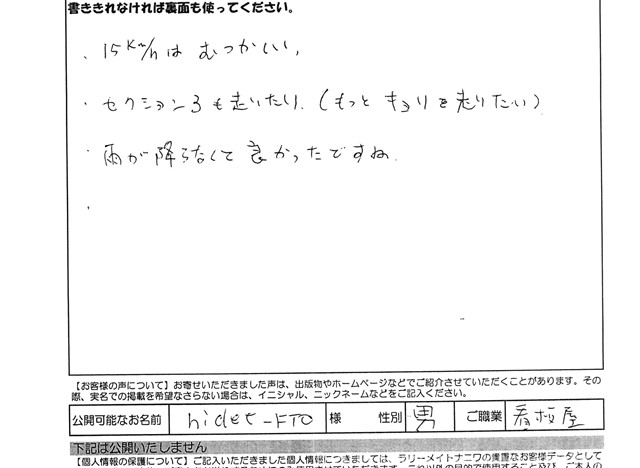 書ききれなければ裏面も使ってください。
・15km/hはむつかしい、
・セクション3も走いたり.(もっとキョリを走りたい)
・雨が降らなくて良かったですね.
・
【お客様の声について】お寄せいただきました声は、出版物やホームページなどでご紹介させていただくことがあります。その
際、実名での掲載を希望なさらない場合は、イニシャル、ニックネームなどをご記入ください。
公開可能なお名前 hidet-FTO 様 性別 男 ご職業 看板屋
下記は公開いたしません
【個人情報の保護について】ご記入いただきました個人情報につきましては、ラリーメイトナニワの貴重なお客様データとして